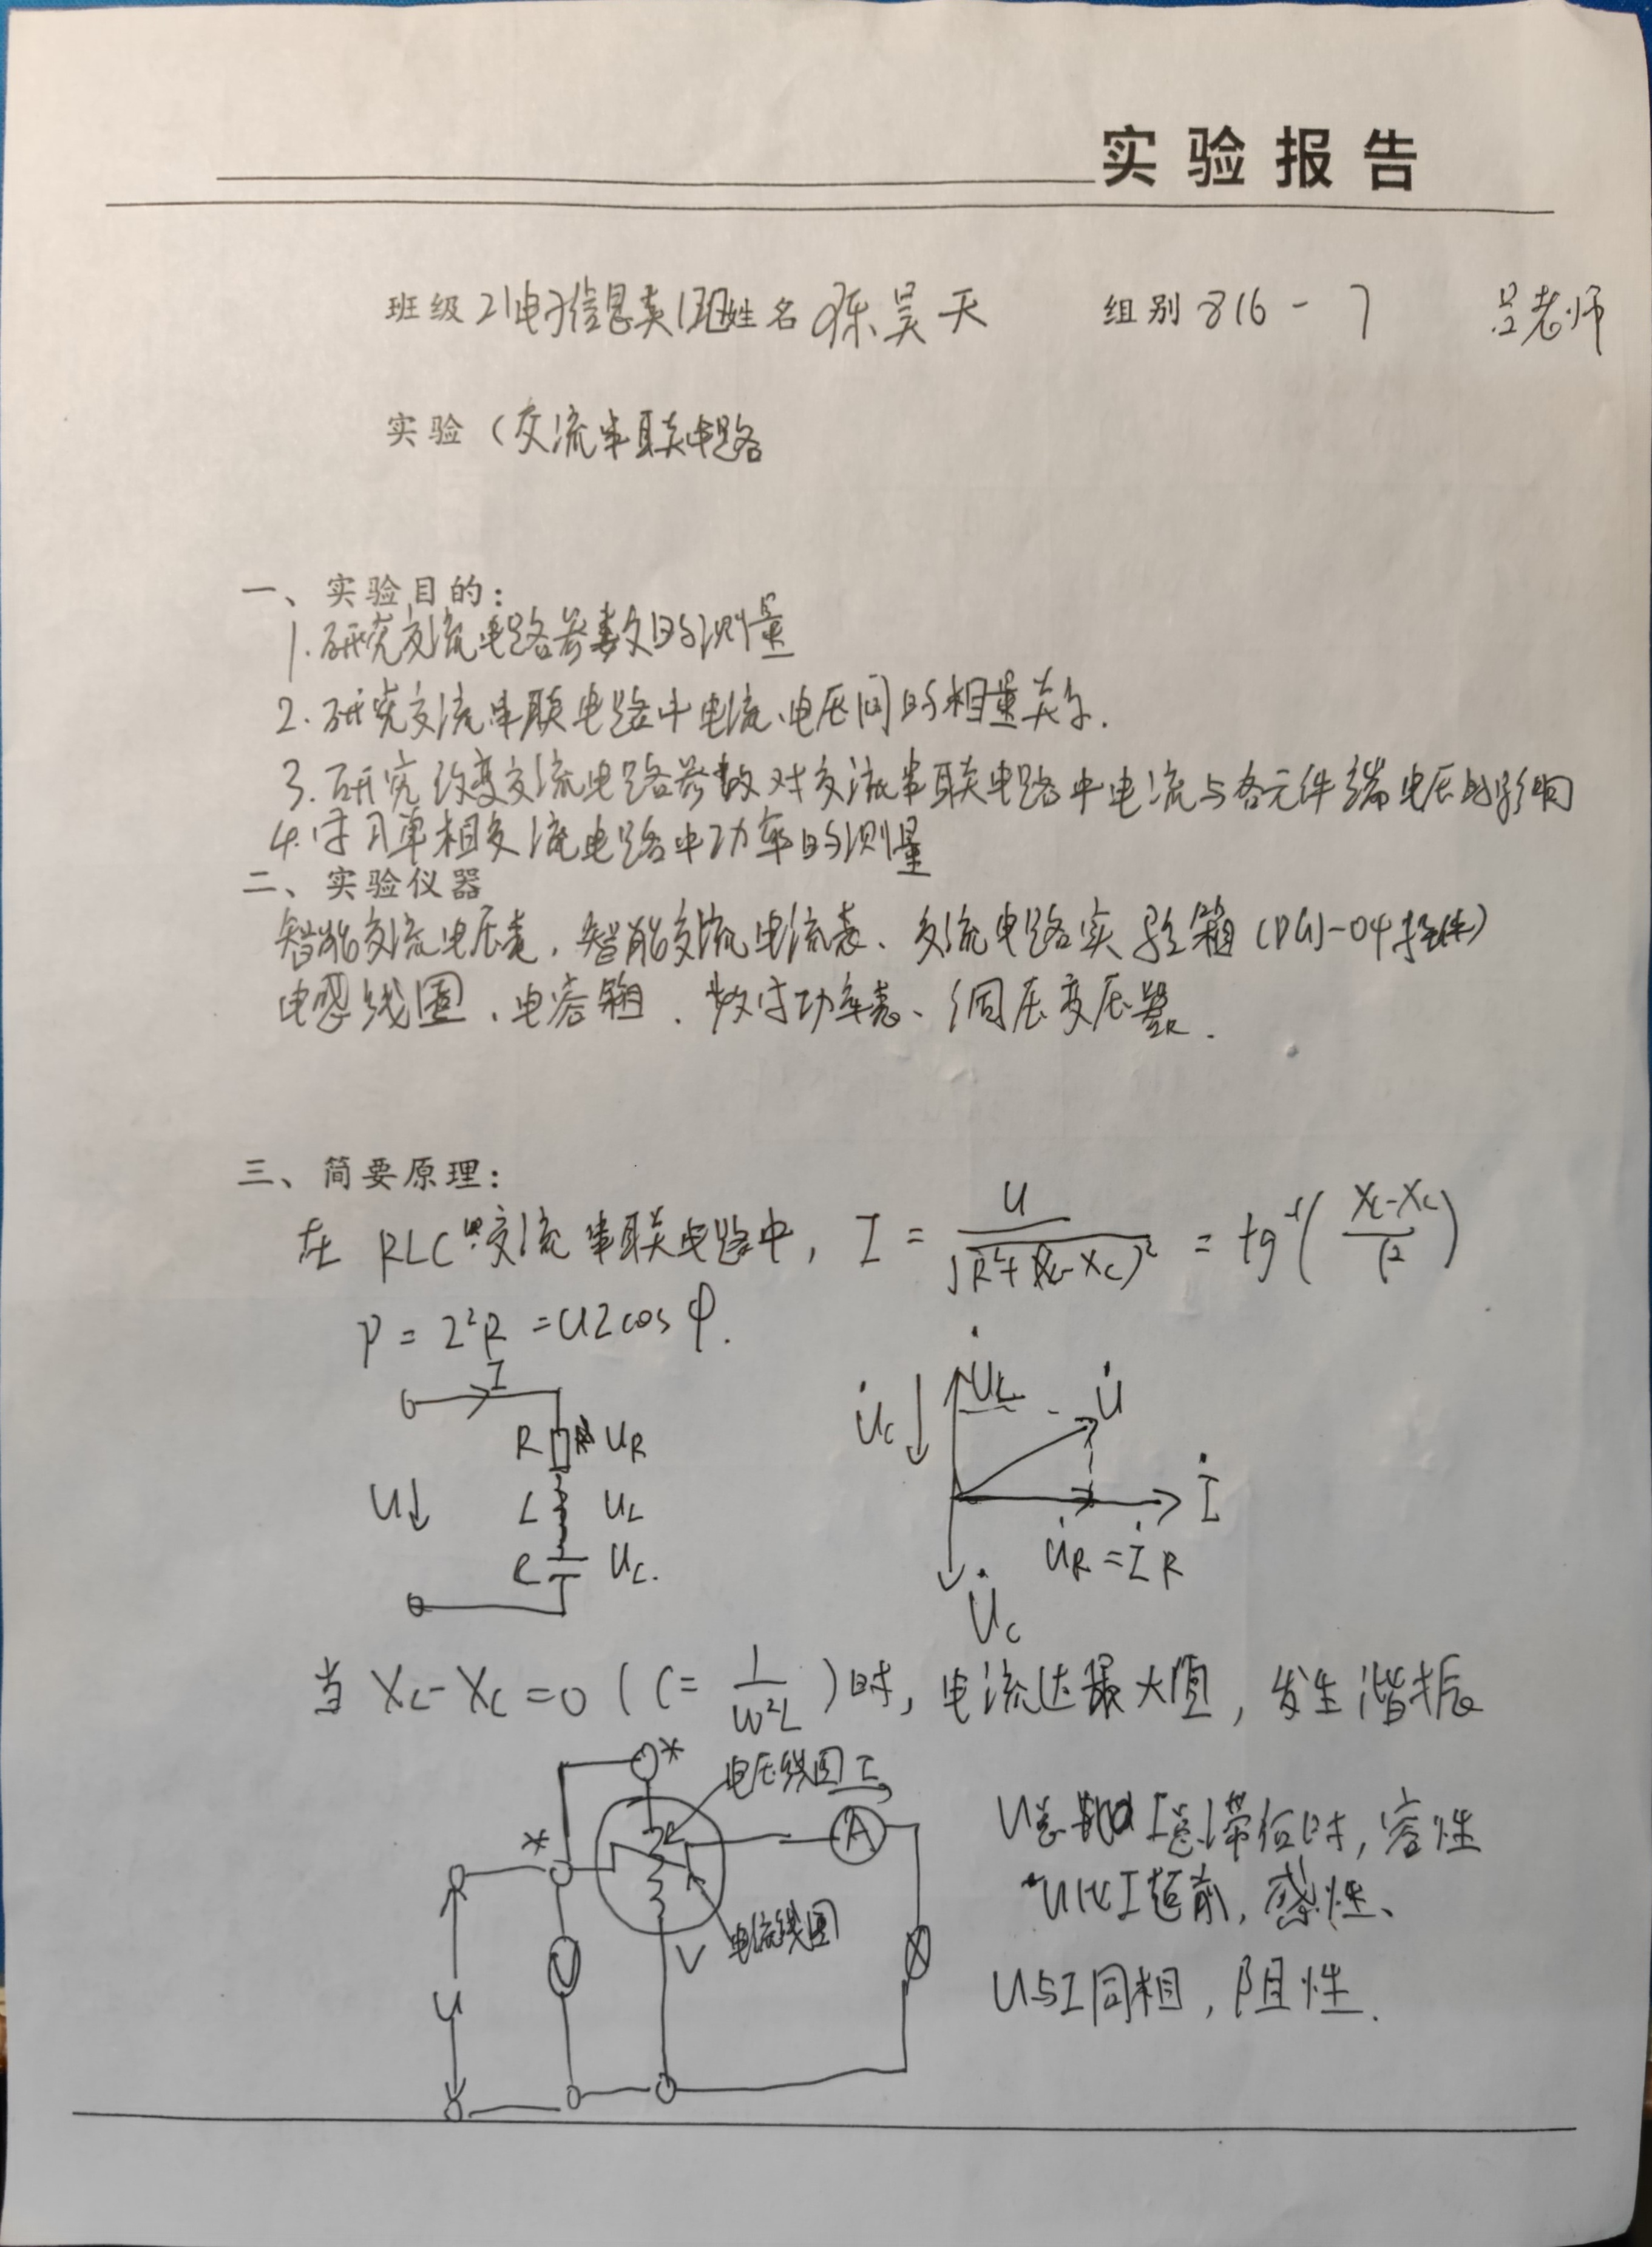 实验报告
班级 21电子信息类1班 姓名 陈昊天 组别 816-7 吕老师
实验(交流串联电路
一、实验目的:
1.研究交流电路参数的测量
2.研究交流串联电路中电流、电压间的相量关系.
3.研究改变交流电路参数对交流串联电路中电流与各元件端电压的影响
4.学习单相交流电路中功率的测量
二、实验仪器
智能交流电压表,智能交流电流表、交流电路实验箱(DGJ-04挂件)
电感线圈、电容箱、数字功率表、调压变压器.
三、简要原理:
在RLC交流串联电路中, I = U/√(R²+(XL-XC)²) = tg⁻¹((XL-XC)/R)
P = I²R = UIcosφ.
I
R UR
U↓ L UL
C UC.
U̇C U̇L U̇
İ
U̇R = İR
U̇C
当 XL-XC=0 (C= 1/ω²L)时,电流达最大值,发生谐振
* 电压线圈 I
* A
V 电流线圈
U V
U总 I总滞后时,容性
U比I超前,感性、
U与I同相,阻性.